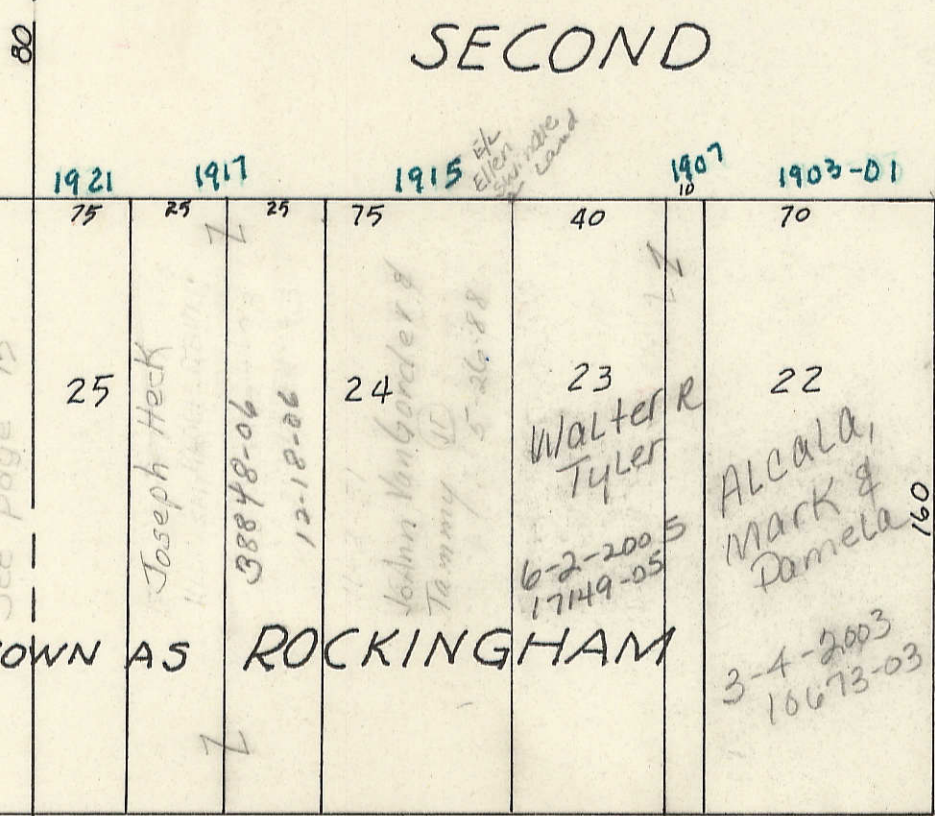 80
SECOND
E/L
Ellen
Swindle
Land
1921 1917 1915 1907 1903-01
75 25 25 75 40 10 70
25
Joseph Heck
38848-06
12-18-06
24
John VanGorder &
Tammy
5-26-88
23
Walter R
Tyler
6-2-2005
17149-05
22
Alcala,
Mark &
Pamela
3-4-2003
10673-03
160
See Page
OWN AS ROCKINGHAM